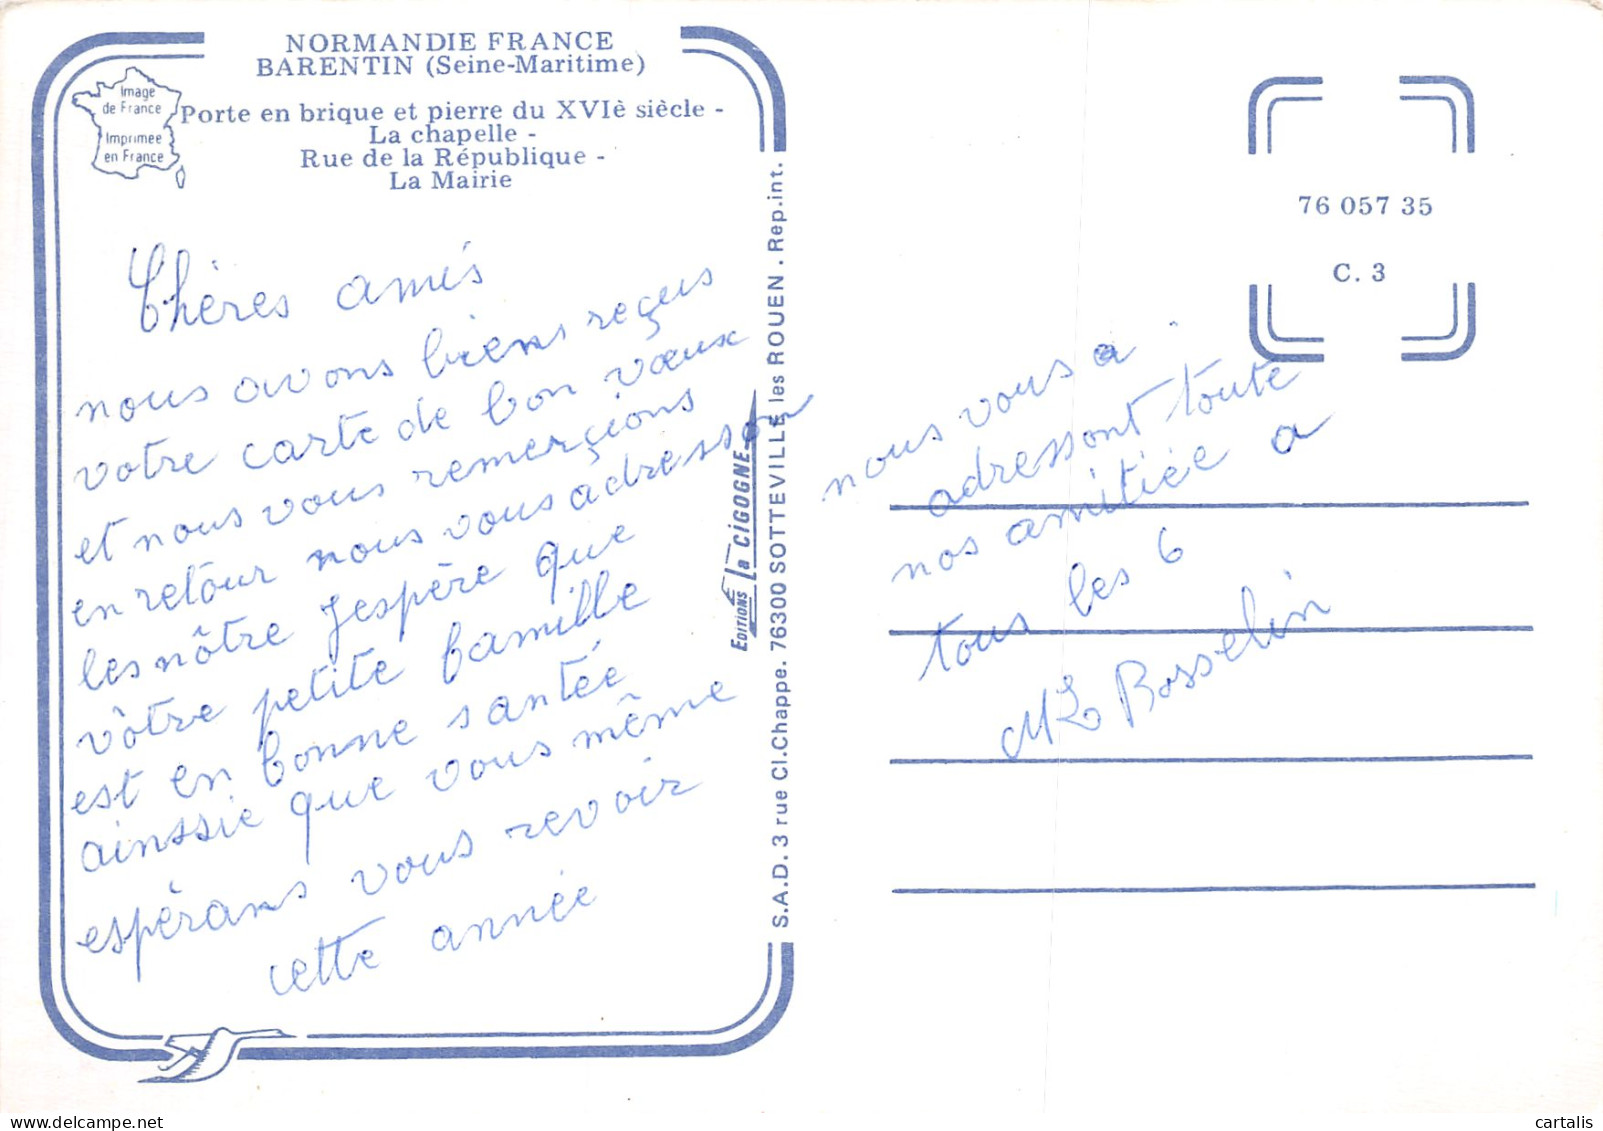 NORMANDIE FRANCE
BARENTIN (Seine-Maritime)
Image
de France
Imprimée
en France
Porte en brique et pierre du XVIè siècle -
La chapelle -
Rue de la République -
La Mairie
Chères amis
nous avons biens reçus
votre carte de bon vœux
et nous vous remerçions
en retour nous vous adresson
les nôtre J'espère que
vôtre petite famille
est en bonne santée
ainssie que vous même
espérans vous revoir
cette année
EDITIONS La CIGOGNE
S.A.D. 3 rue Cl.Chappe. 76300 SOTTEVILLE les ROUEN . Rep.int.
76 057 35
C. 3
nous vous a
adressont toute
nos amitiée a
tous les 6
ML Bosselin
cartalis
delcampe.net